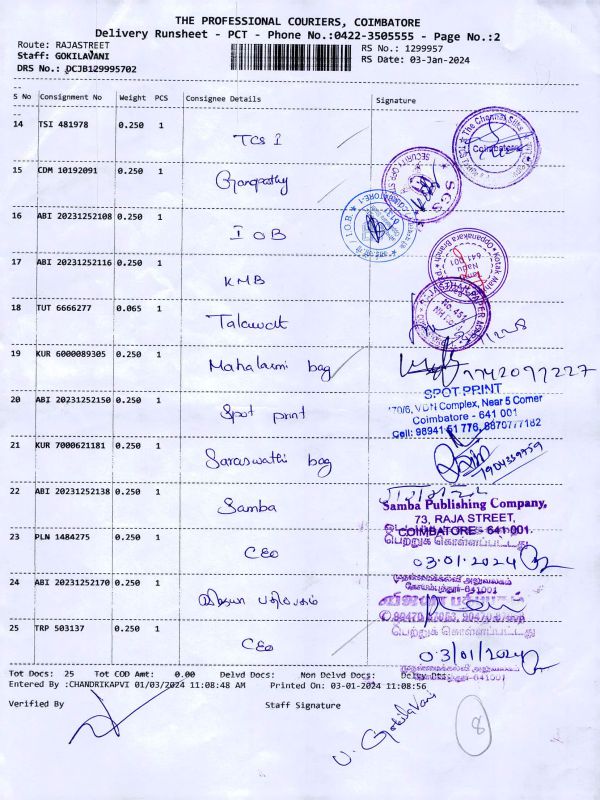 THE PROFESSIONAL COURIERS, COIMBATORE
Delivery Runsheet - PCT - Phone No.:0422-3505555 - Page No.:2
Route: RAJASTREET
RS No.: 1299957
Staff: GOKILAVANI
RS Date: 03-Jan-2024
DRS No.: DCJB129995702
S No Consignment No Weight PCS Consignee Details Signature
14 TSI 481978 0.250 1
TCS I
15 CDM 10192091 0.250 1
Ganapathy
16 ABI 20231252108 0.250 1
IOB
17 ABI 20231252116 0.250 1
KMB
18 TUT 6666277 0.065 1
19 KUR 6000089305 0.250 1
Mahalaxmi bag
20 ABI 20231252150 0.250 1
Spot print
SPOT PRINT
170/6, VDN Complex, Near 5 Corner
Coimbatore - 641 001
Cell: 98941 51 776, 8870777182
21 KUR 7000621181 0.250 1
Saraswathi bag
22 ABI 20231252138 0.250 1
Samba
Samba Publishing Company,
73, RAJA STREET,
COIMBATORE - 641 001.
23 PLN 1484275 0.250 1
CEO
பெற்றுக் கொள்ளப்பட்டது
03.01.2024
24 ABI 20231252170 0.250 1
விஜயா பதிப்பகம்
முதன்மைக்கல்வி அலுவலகம்
கோயம்புத்தூர்-641001
விஜயா பதிப்பகம்
25 TRP 503137 0.250 1
CEO
பெற்றுக் கொள்ளப்பட்டது
03/01/2024
Tot Docs: 25 Tot COD Amt: 0.00 Delvd Docs: Non Delvd Docs:
Entered By :CHANDRIKAPVI 01/03/2024 11:08:48 AM Printed On: 03-01-2024 11:08:56
Verified By Staff Signature
V. Gokilavani
8